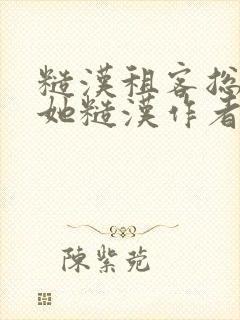 糙漢租客総
她糙漢作者
陳紫菀